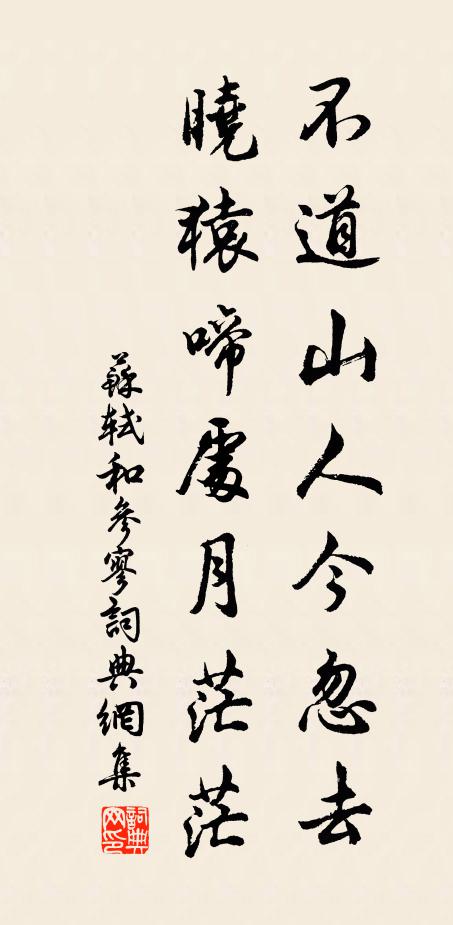 不道山人今忽去
曉猿啼處月茫茫
蘇軾和參寥詞典網集
詞典网印